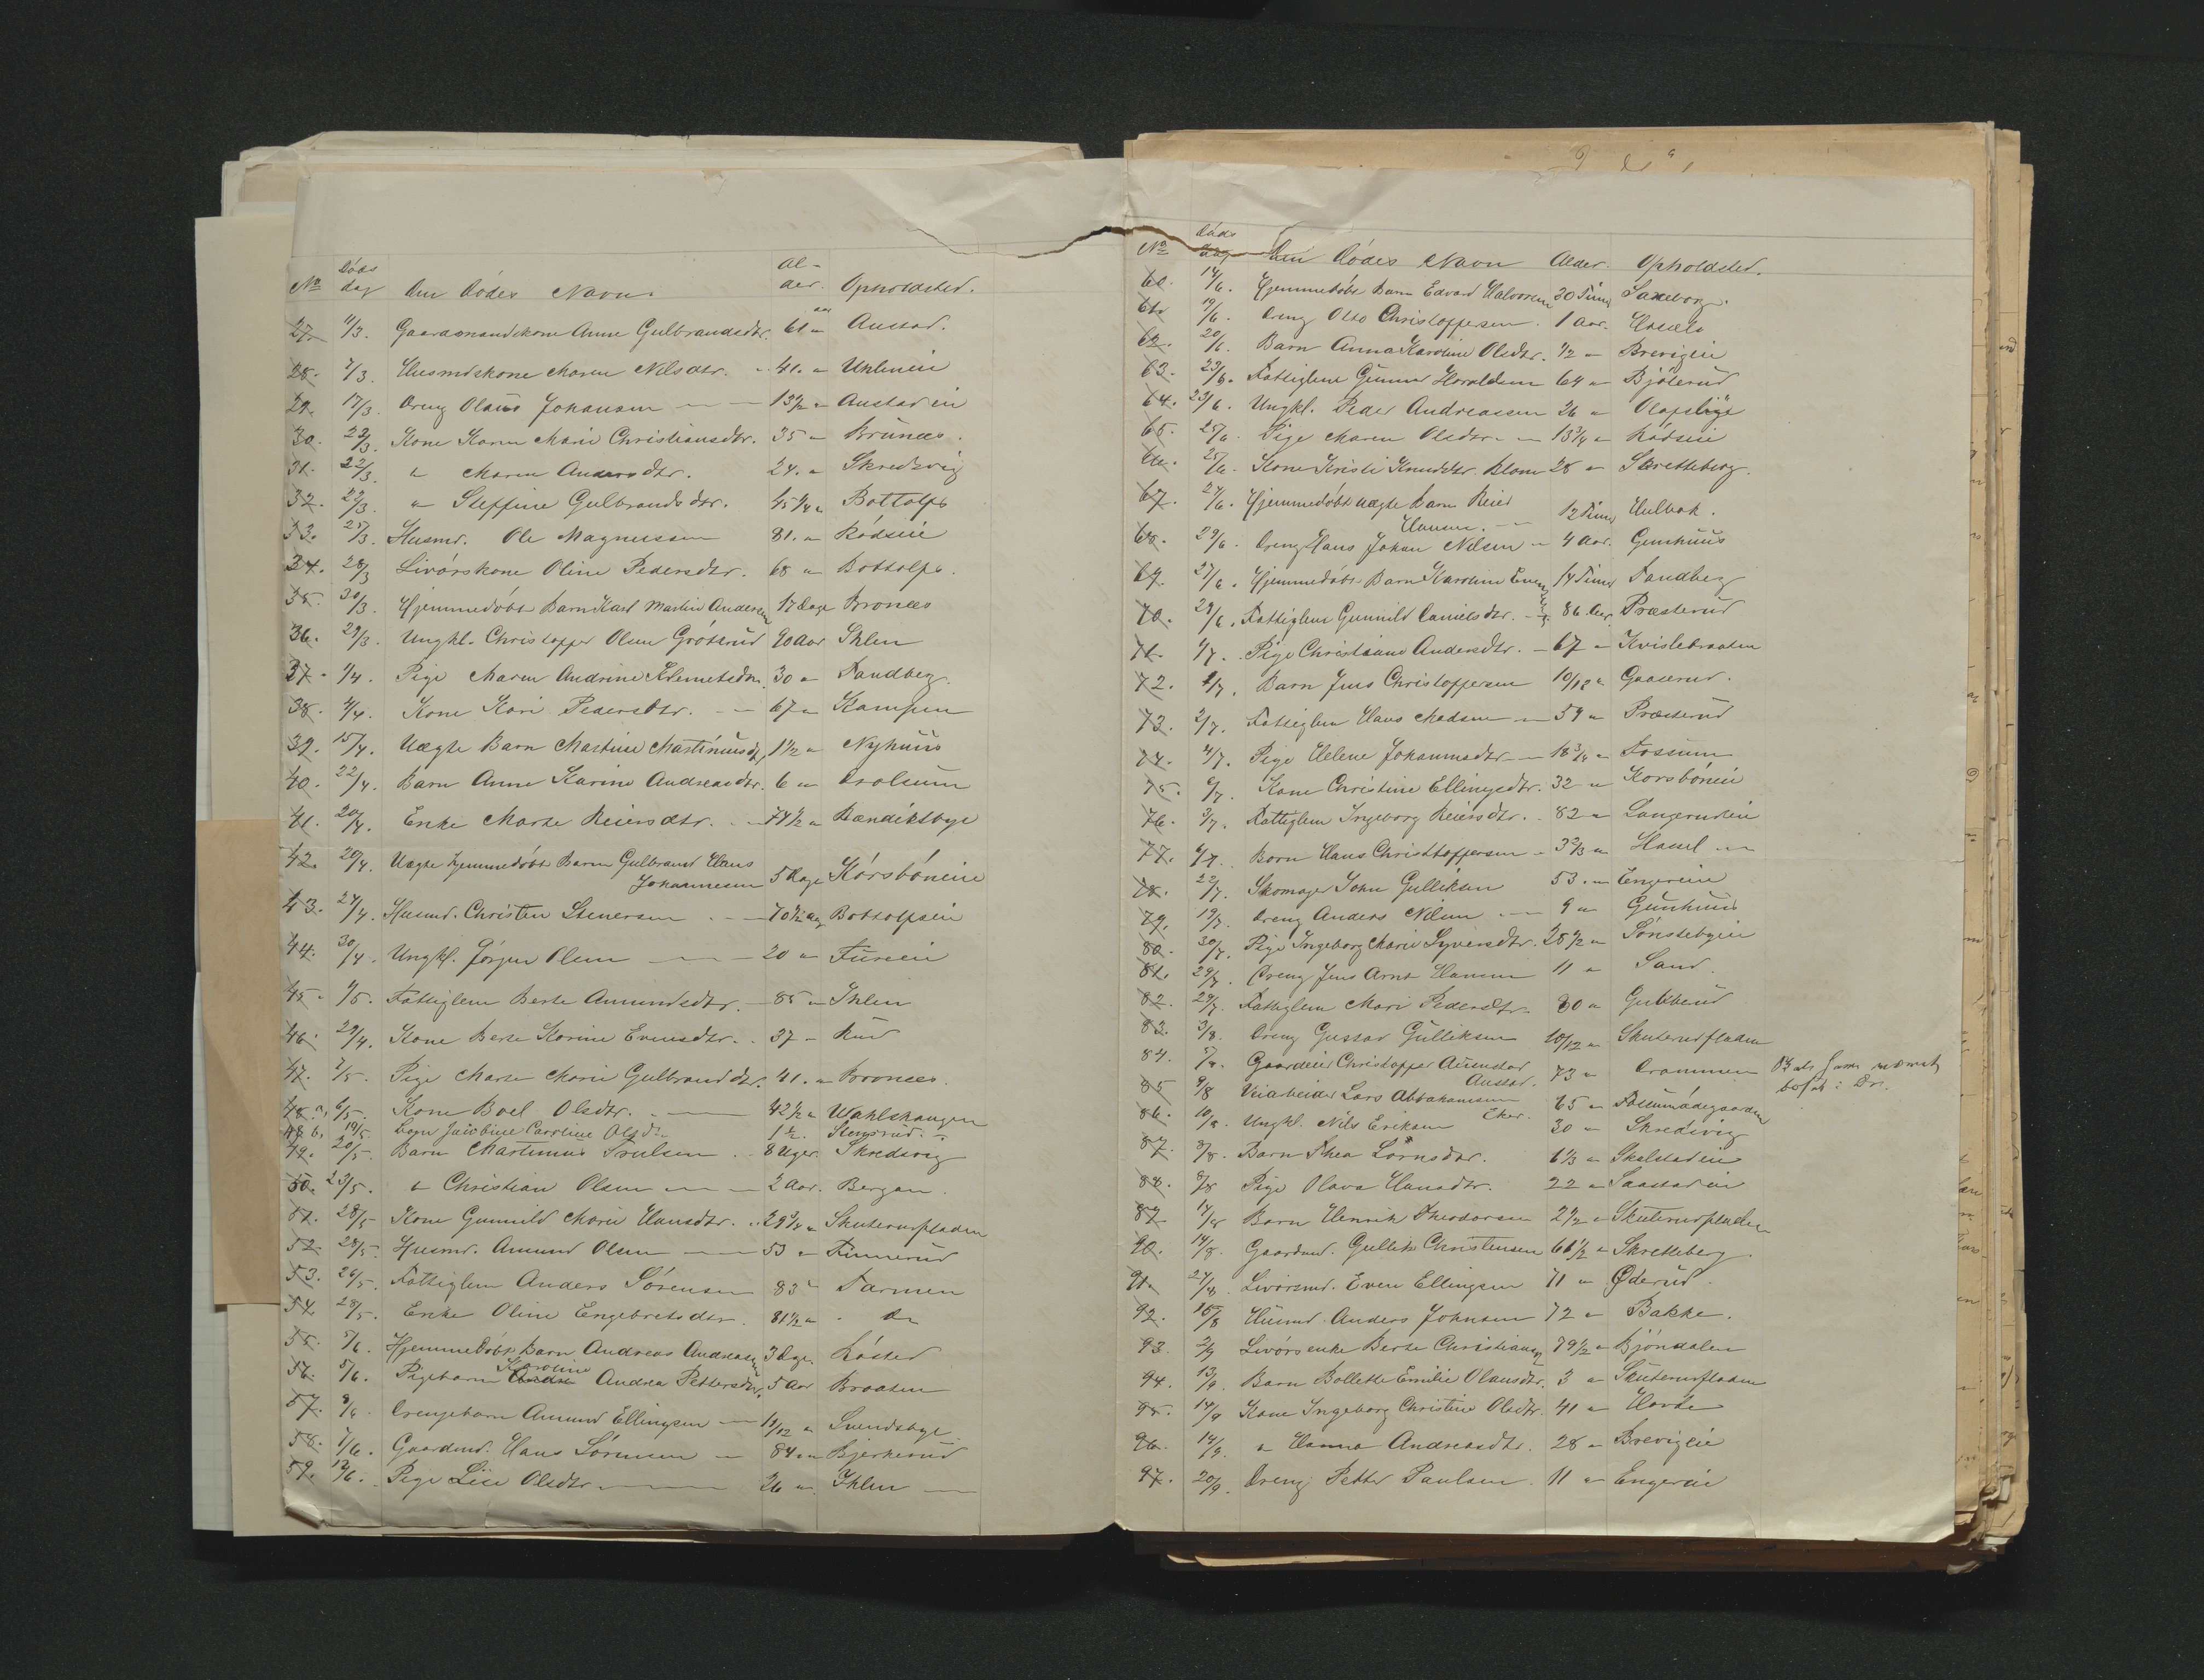 No Døds dag Den Dødes Navn. Al-der. Opholdsted.
27. 11/3. Gaardmandskone Anne Gulbrandsdtr. 61 aar Austad.
28. 7/3. Husmdskone Maren Nilsdtr. 41. "
29. 17/3. Dreng Olaus Johansen — 13 1/2 " Austadeie
30. 23/3. Kone Karen Marie Christiansdtr. 35 " Brunæs.
31. 22/3. " Maren Andersdtr. 24. " Skredsvig
32. 22/3. " Steffine Gulbrandsdtr. 45 1/4 " Bottolfs
33. 25/3. Husmd. Ole Magnussen 81. " Rødseie
34. 28/3 Livørskone Oline Pedersdtr. 68 " Bottolfs.
35. 30/3. Hjemmedøbt Barn Karl Martin Andersen 17 Dage Bronæs
36. 29/3. Ungkl. Christopher Olsen Grøterud 90 Aar Ihlen
37. 1/4. Pige Maren Andrine Klemetsdtr. 30 " Sandberg.
38. 4/4. Kone Kari Pedersdtr. — 67 " Kampen
39. 15/4. Uægte Barn Martine Martinusdtr. 1 1/2 " Nyhuus
40. 22/4. Barn Anne Karine Andreasdtr. 6 " Drolsum
41. 20/4. Enke Marte Reiersdtr. — 74 1/2 " Bændiktsbye
42. 20/4. Uægte hjemmedøbt Barn Gulbrand Hans
Johannesen 5 Dage Korsbøneie
43. 27/4. Husmd. Christen Stenersen — 70 1/2 Aar Bottolfseie
44. 30/4. Ungkl. Jørgen Olsen — 20 " Fureeie
45. 1/5. Fattiglem Berte Amundsdtr. — 85 " Ihlen
46. 29/4. Kone Berte Karine Evensdtr. 37 — Rud
47. 7/5. Pige Marte Marie Gulbrandsdtr. 41. " Bronæs.
48 a. 6/5. Kone Boel Olsdtr. — 42 1/2 " Wahlshaugen
48 b. 19/5. Barn Jacobine Caroline Olsdtr. 1 1/2. Stensrud.
49. 20/5. Barn Martinus Truelsen 8 Uger. Skredsvig
50. 23/5. " Christian Olsen — 2 Aar. Bergan.
51. 28/5 Kone Gunnild Marie Hansdtr. 29 3/4 " Skuterudfladen
52. 28/5. Husmd. Amund Olsen — 53 " Finnerud
53. 26/5. Fattiglem Anders Sørensen 83 " Tarmen
54. 28/5. Enke Oline Engebretsdtr. 81 1/2 " Do
55. 5/6. Hjemmedøbt Barn Andreas Andreasen 3 Dage
56. 5/6. Pigebarn Karoline Andrea Pettersdtr. 5 Aar Braaten
57. 8/6. Drengebarn Amund Ellingsen — 11/12 " Svendsbye.
58. 7/6. Gaardmd. Hans Sørensen — 84 " Bjerkerud
59. 12/6. Pige Lise Olsdtr — 26 " Ihlen —
No Døds dag Den Dødes Navn Alder. Opholdsted.
60. 14/6. Hjemmedøbt Barn Edvard Halvorsen 30 Timer Saxeborg.
61. 19/6. Dreng Otto Christoffersen. 1 Aar.
62. 20/6. Barn Anna Karoline Olsdtr. 1/2 " Brevigeie
63. 23/6. Fattiglem Gunner Haraldsen 64 " Bjølerud
64. 23/6. Ungkl. Peder Andreassen 26 " Olafsbye
65. 25/6. Pige Maren Olsdtr. — 13 3/4 " Rødseie
66. 25/6. Kone Kristi Knudsdtr. Klom 28 " Skretteberg.
67. 27/6. Hjemmedøbt uægte Barn Reier
Hansen. — 12 Timer Hulbak.
68. 29/6. Dreng Hans Johan Nilsen — 4 Aar. Gunhuus
69. 27/6. Hjemmedøbt Barn Karoline 14 Timer Sandberg
70. 29/6. Fattiglem Gunnild Danielsdtr. — 86 Aar. Præsterud
71. 1/7. Pige Christiane Andersdtr. — 67 " Kvislebraaten
72. 1/7. Barn Jens Christoffersen 10/12 " Gaaserud.
73. 2/7. Fattiglem Hans Madsen — 59 " Præsterud
74. 4/7. Pige Helene Johannesdtr. — 18 3/4 " Fossum
75. 6/7. Kone Christine Ellingsdtr. 32 " Korsbøneie
76. 3/7. Fattiglem Ingeborg Reiersdtr. 82 " Langerudeie
77. 6/7. Barn Hans Christoffersen — 3 2/3 "
78. 22/7. Skomager John Gulliksen 53. " Engereie
79. 19/7. Dreng Anders Nilsen — 9 " Gunhuus
80. 30/7. Pige Ingeborg Marie Syversdtr. 28 1/2 " Sønstebyeie
81. 29/7. Dreng Jens Arnt Hansen 11 " Sand.
82. 29/7. Fattiglem Mari Pedersdtr. 80 " Gubberud
83. 3/8. Dreng Gustav Gulliksen 10/12 " Skuterudfladen
84. 5/8. Gaardeier Christopher Aumestad
Austad. 73 " Drammen
85 9/8 Veiarbeider Lars Abrahamsen
Eker. 65 " Fossumødegaarden
86. 10/8. Ungkl. Nils Eriksen 30 " Skredsvig
87. 8/8. Barn Thea Larsdtr. 6 1/3 " Skalstadeie
88. 9/8 Pige Olava Hansdtr. 22 " Saastadeie
89. 17/8 Barn Henrik Theodorsen 2 1/2 " Skuterudfladen
90. 14/8. Gaardmd. Gullik Christensen 61 1/2 " Skretteberg.
91. 27/8. Livørsmd. Even Ellingsen 71 " Øderud.
92. 15/8 Husmd. Anders Johnsen 72 " Bakke.
93. 2/9 Livørsenke Berte Christiansdtr 79 1/2 " Bjøndalen
94. 13/9. Barn Bollette Emilie Olausdtr. 3 " Skuterudfladen
95. 14/9 Kone Ingeborg Christine Olsdtr. 41 " Hovde
96. 14/9. " Hanna Andreasdtr. 28 " Brevigeie
97. 20/9. Dreng Petter Paulsen. 11 " Engereie